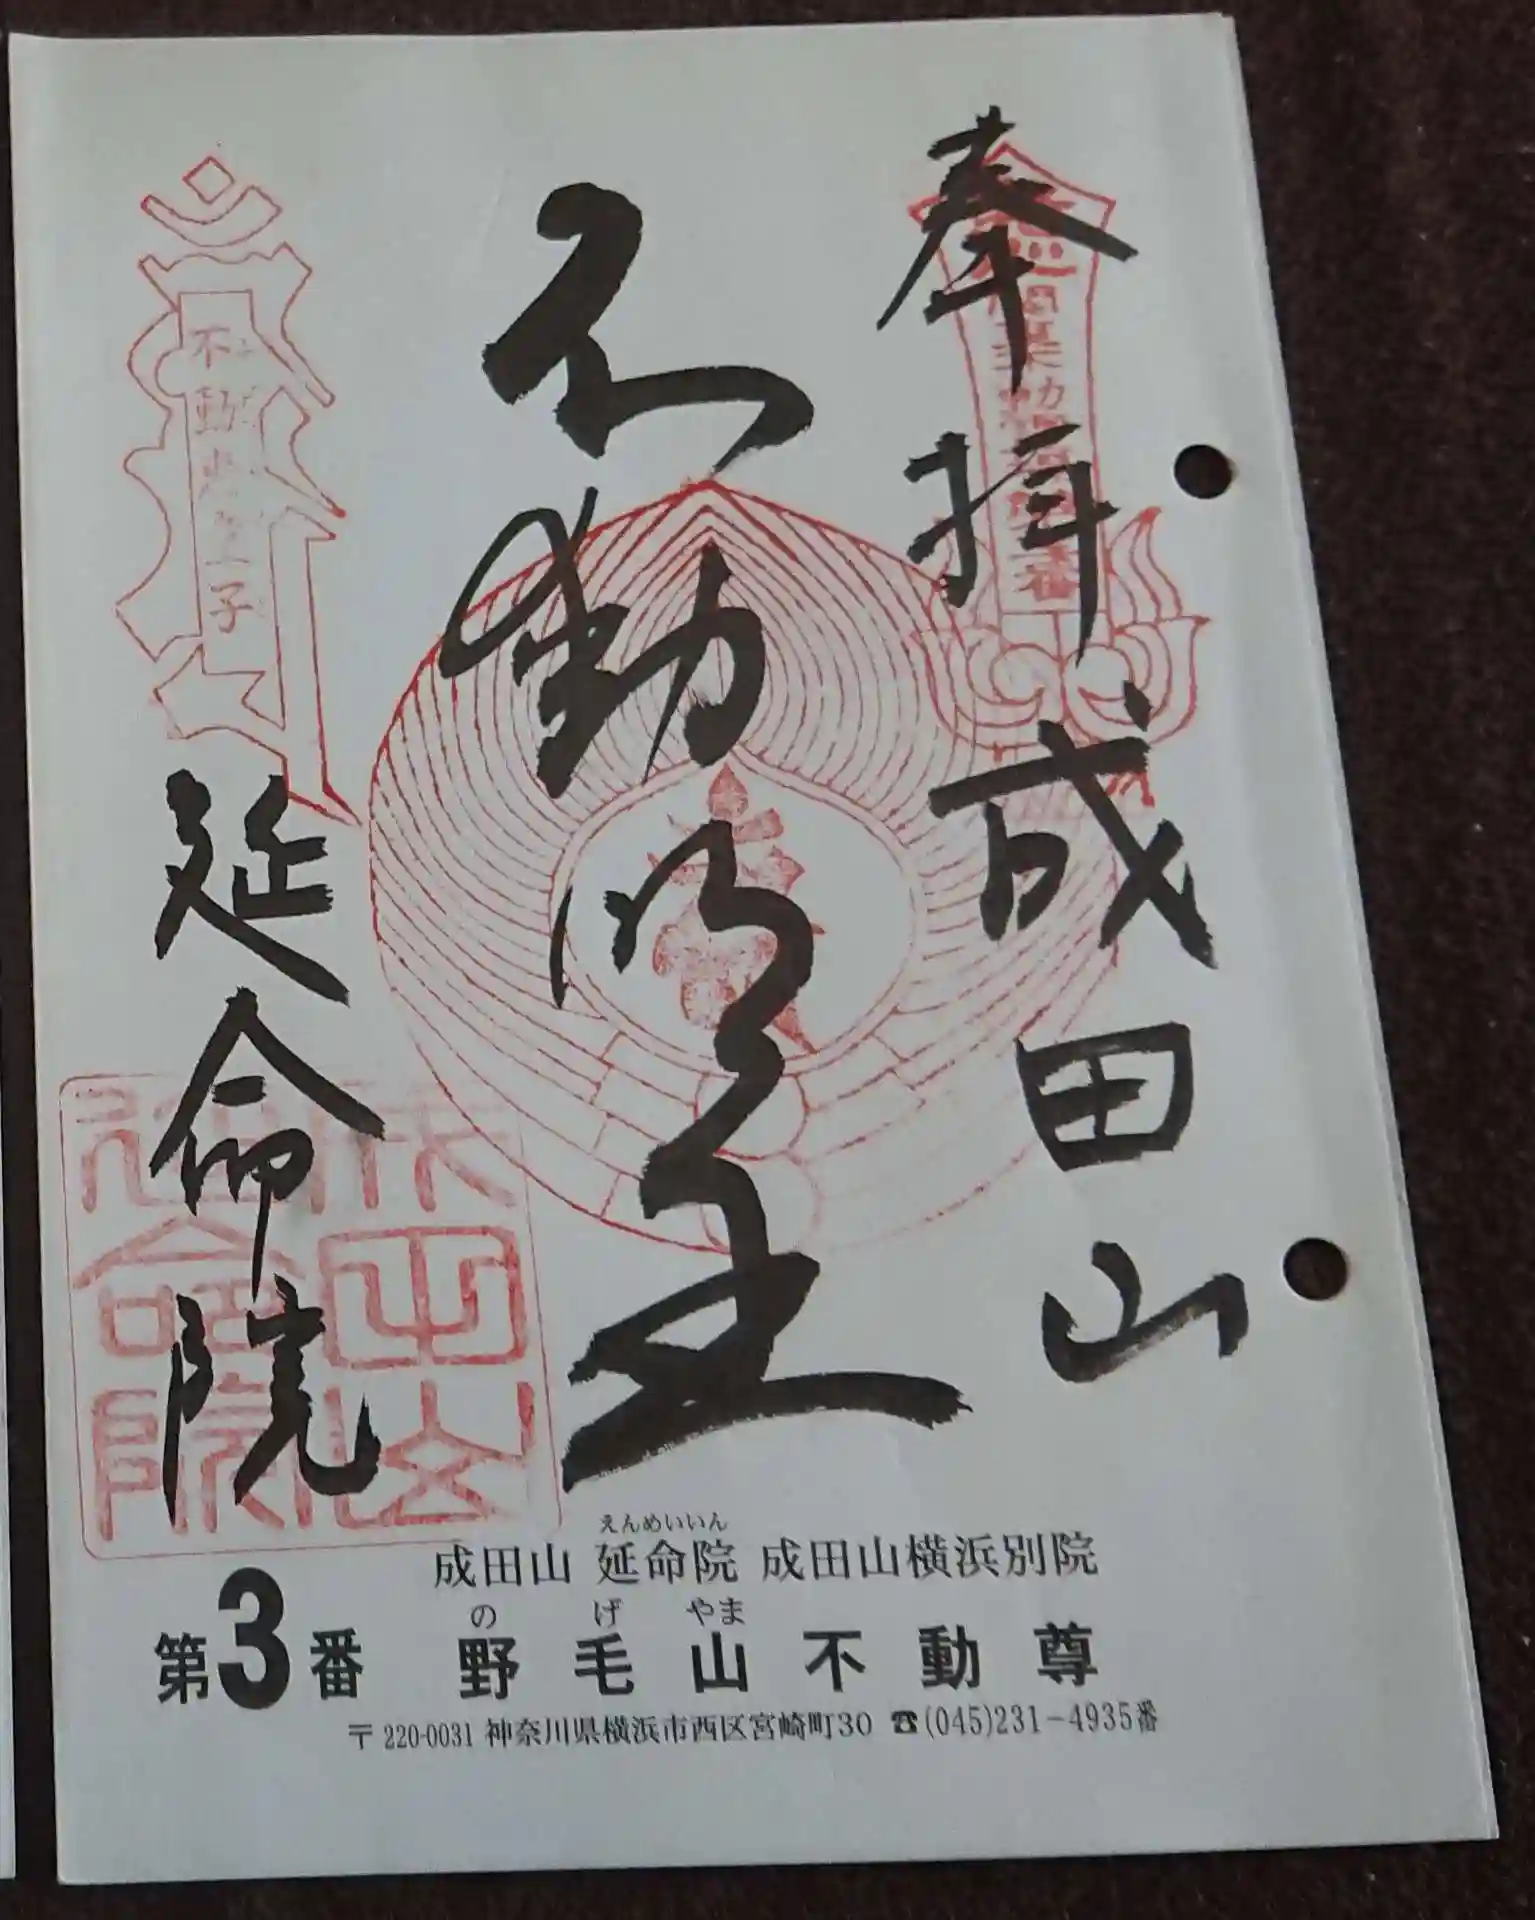 奉拝 成田山
不動明王
延命院
えんめいいん
成田山 延命院 成田山横浜別院
の げ やま
第3番 野毛山不動尊
〒220-0031 神奈川県横浜市西区宮崎町30 ☎(045)231-4935番
成田山
延命院